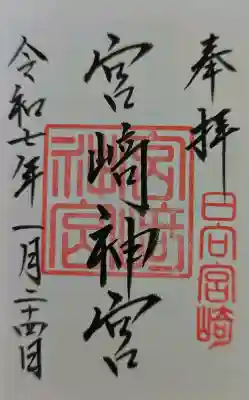 奉拝
日向宮崎
宮﨑神宮
宮﨑神宮
令和七年一月二十四日